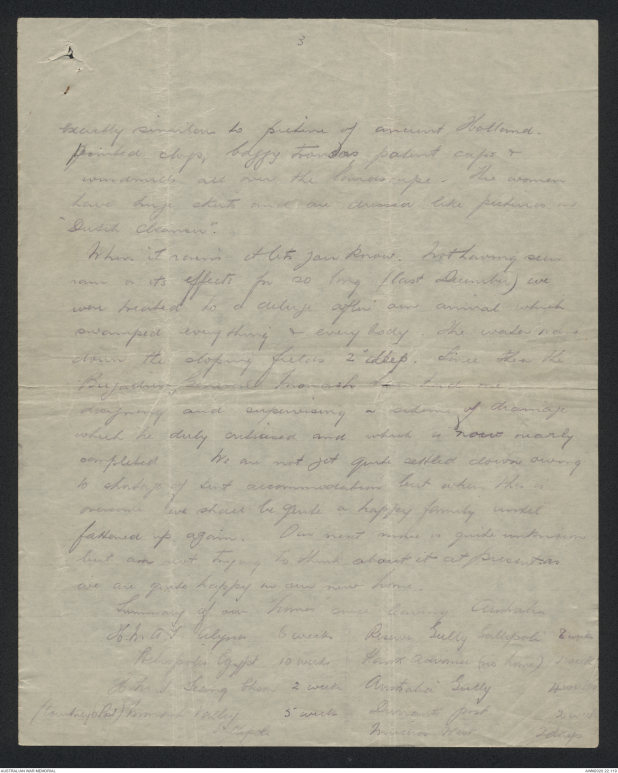 3
exactly similar to picture of ancient Holland.
Pointed clogs, baggy trousers patent caps &
windmills all over the landscape. The women
have huge skirts and are dressed like pictures on
"Dutch Cleanser".
When it rains it lets you know. Not having seen
rain or its effects for so long (last December) we
were treated to a deluge after our arrival which
swamped everything & everybody. The water ran
down the sloping fields 2" deep. Since then the
Brigadier General Monash has had me
designing and supervising a scheme of drainage
which he duly criticised and which is now nearly
completed We are not yet quite settled down owing
to shortage of tent accommodation but when this is
overcome we shall be quite a happy family until
fattened up again. Our next move is quite unknown
but am not trying to think about it at present as
we are quite happy in our new home.
Summary of our homes since leaving Australia
weeks Reserve Gully Gallipoli
Heliopolis Egypt 10 weeks (no home) 1 week
2 weeks Australia Gully
Valley 5 weeks post
2 days